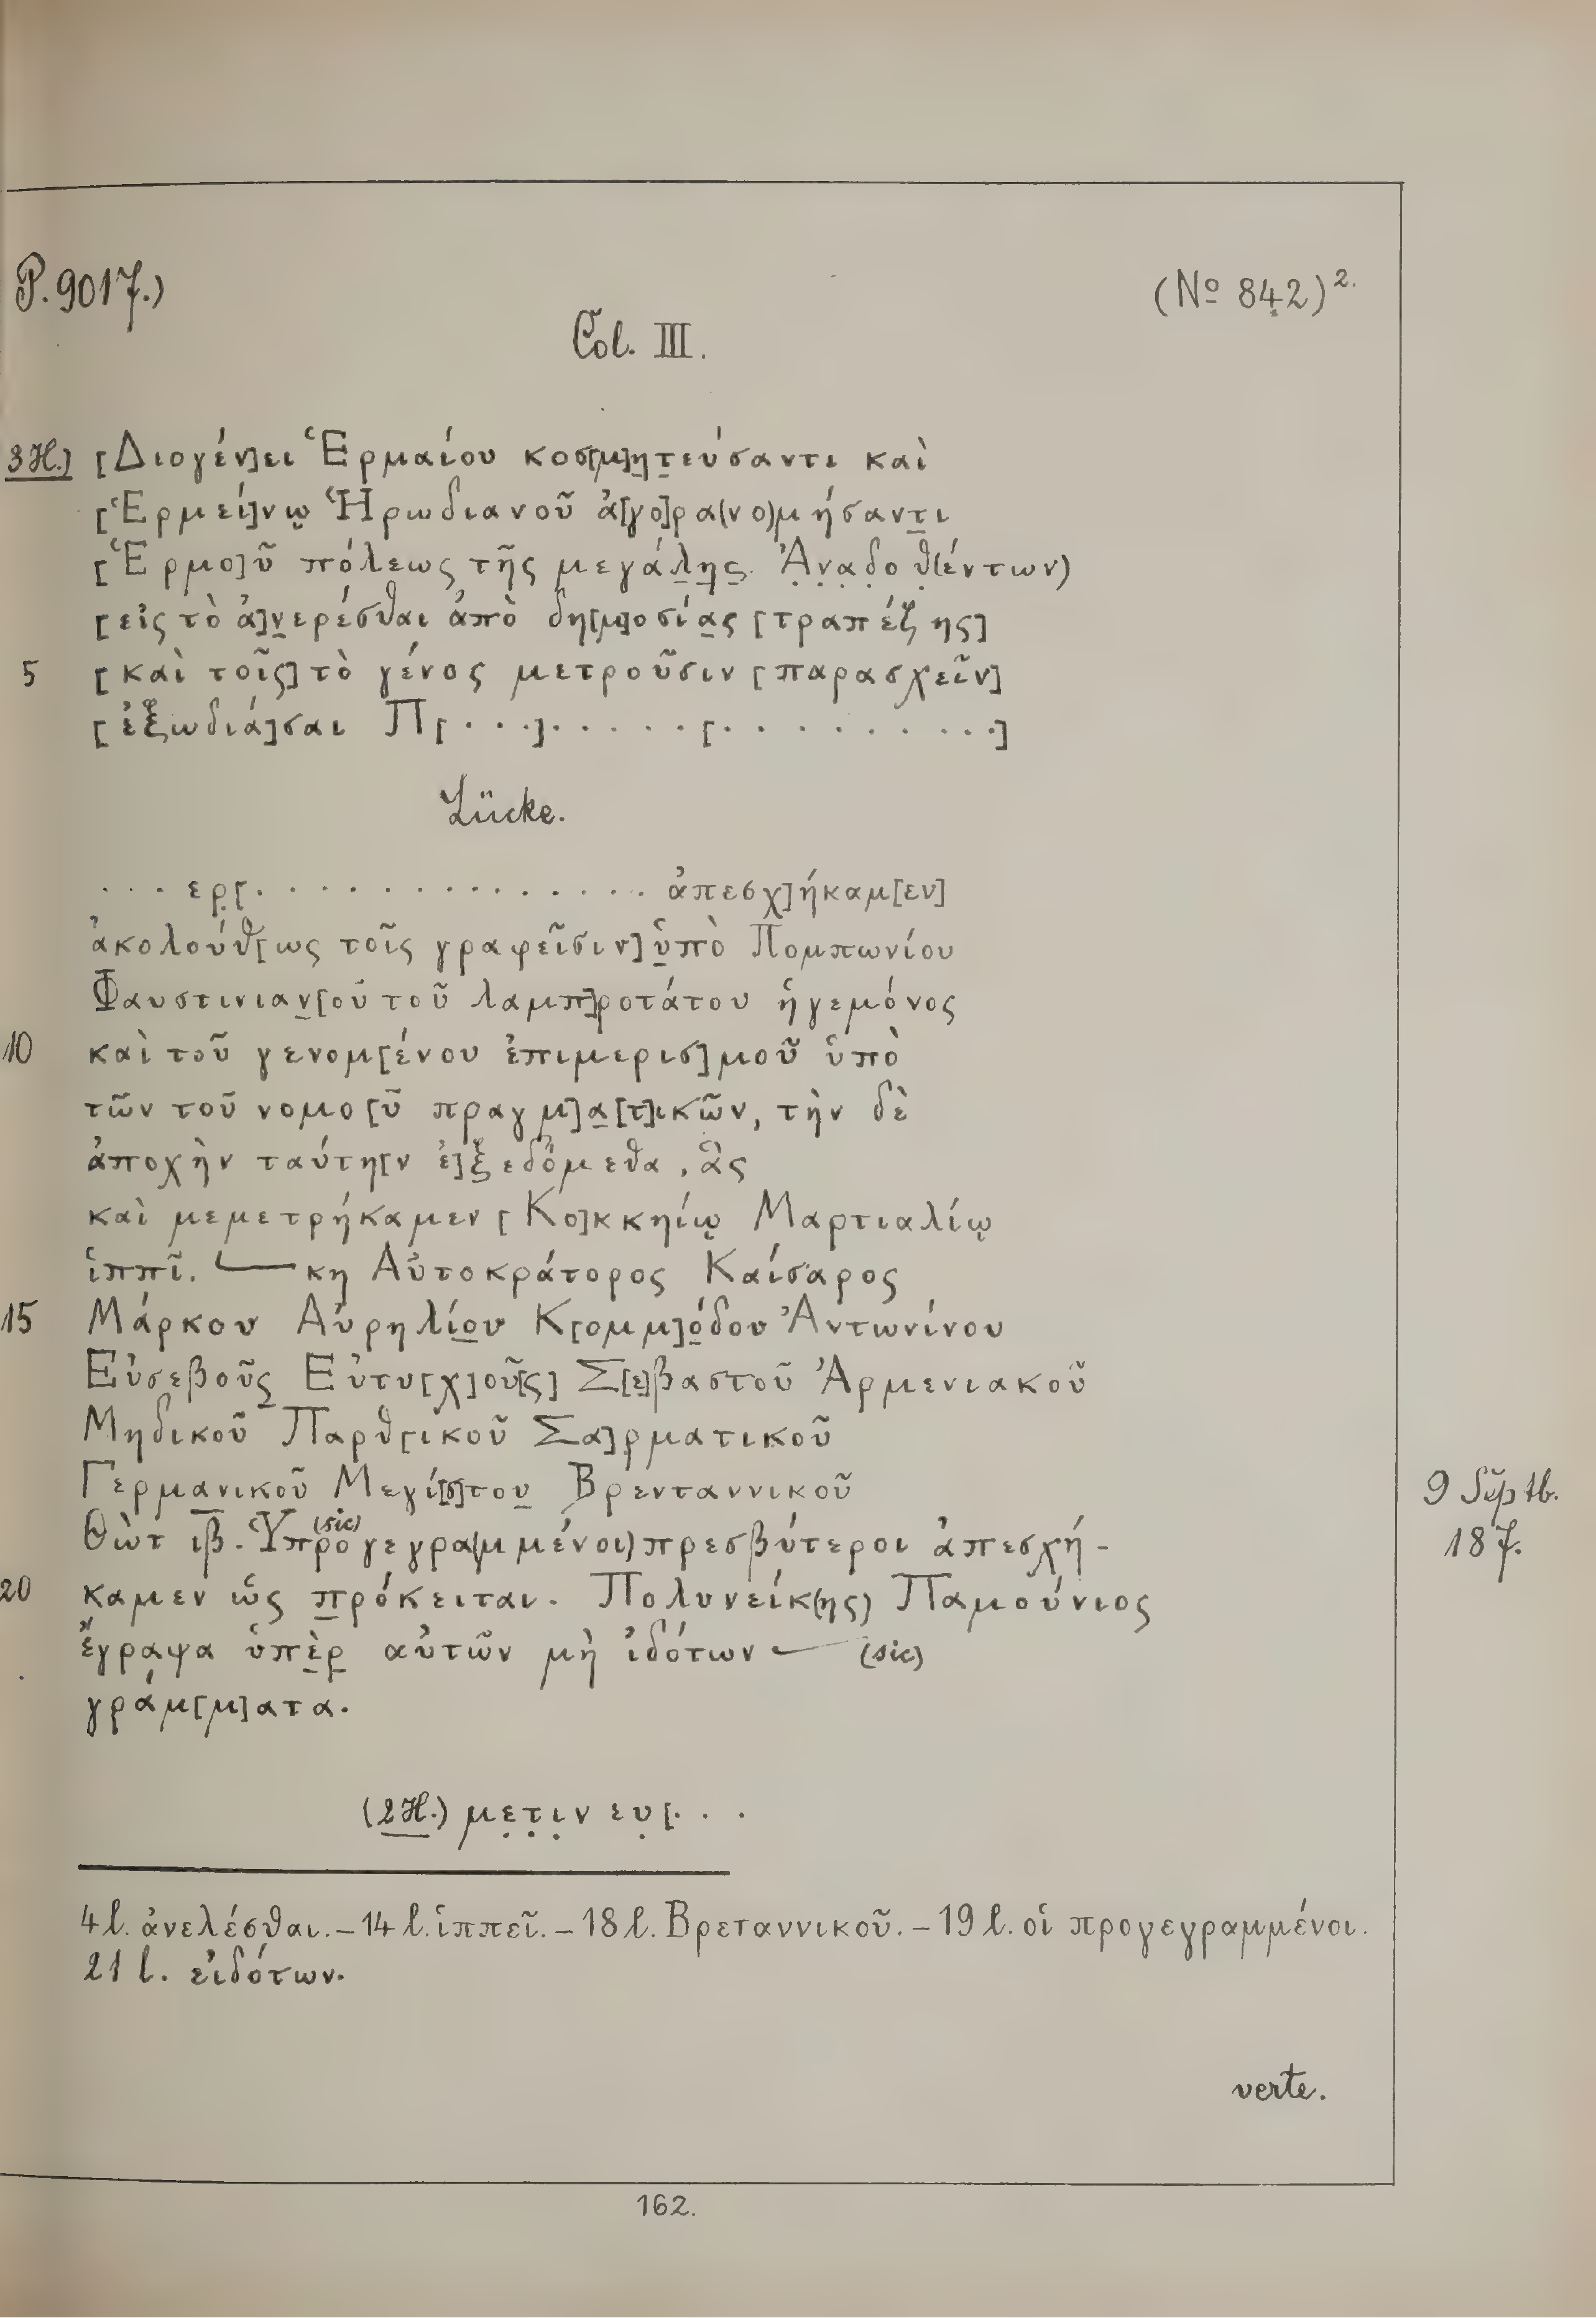 P. 9017.)
(No 842)2.
Col. III.
3 H.] [Διογέν]ει Ἑρμαίου κοσ[μ]ητεύσαντι καὶ
[Ἑρμεί]νῳ Ἡρωδιανοῦ ἀ[γο]ρα(νο)μήσαντι
[Ἑρμο]ῦ πόλεως τῆς μεγάλης. Ἀναδοθ(έντων)
[εἰς τὸ ἀ]νερέσθαι ἀπὸ δη[μ]οσίας [τραπέζης]
5 [καὶ τοῖς] τὸ γένος μετροῦσιν [παρασχεῖν]
[ἐξωδιά]σαι Π[. . .]. . . . . .[. . . . . . . . . . .]
Lücke.
. . . ερ[. . . . . . . . . . . . . . . ἀπεσχ]ήκαμ[εν]
ἀκολούθ[ως τοῖς γραφεῖσιν] ὑπὸ Πομπωνίου
Φαυστινιαν[οῦ τοῦ λαμπ]ροτάτου ἡγεμόνος
10 καὶ τοῦ γενομ[ένου ἐπιμερισ]μοῦ ὑπὸ
τῶν τοῦ νομο[ῦ πραγμ]α[τ]ικῶν, τὴν δὲ
ἀποχὴν ταύτη[ν ἐ]ξεδόμεθα, ἃς
καὶ μεμετρήκαμεν [Κο]κκηίῳ Μαρτιαλίῳ
ἱππῖ. 𐅹 κη Αὐτοκράτορος Καίσαρος
15 Μάρκου Αὐρηλίου Κ[ομμ]όδου Ἀντωνίνου
Εὐσεβοῦς Εὐτυ[χ]οῦ[ς] Σ[ε]βαστοῦ Ἀρμενιακοῦ
Μηδικοῦ Παρθ[ικοῦ Σα]ρματικοῦ
Γερμανικοῦ Μεγί[σ]του Βρενταννικοῦ
9 Septb.
187.
Θὼτ ιβ̅. Ὑπρογεγρα(μμένοι) πρεσβύτεροι ἀπεσχή-
(sic)
20 καμεν ὡς πρόκειται. Πολυνείκ(ης) Παμούνιος
ἔγραψα ὑπὲρ αὐτῶν μὴ ἰδότων — (sic)
γράμ[μ]ατα.
(2 H.) μετιν ευ[. . .
4 l. ἀνελέσθαι. – 14 l. ἱππεῖ. – 18 l. Βρεταννικοῦ. – 19 l. οἱ προγεγραμμένοι.
21 l. εἰδότων.
verte.
162.